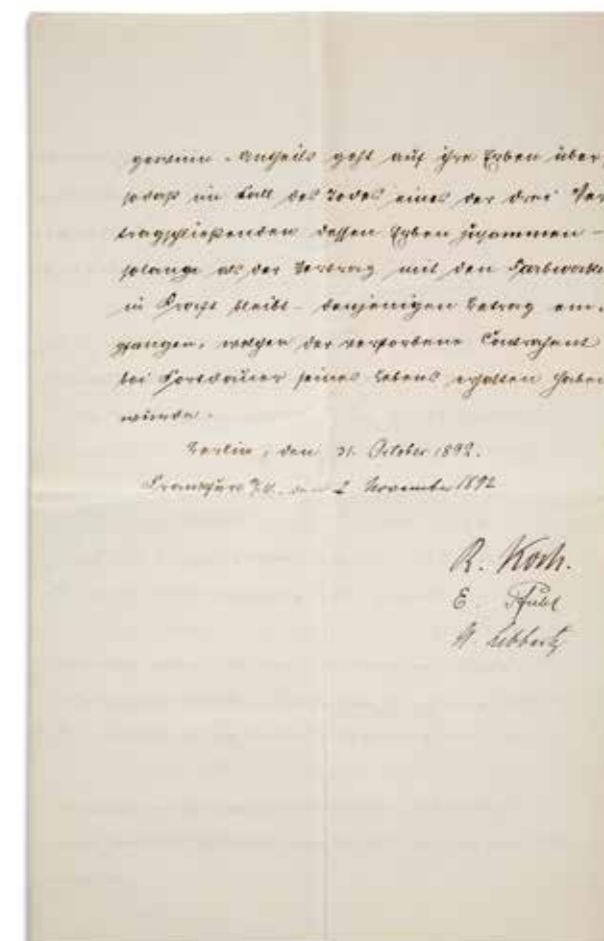 gewinn-Antheils geht auf ihre Erben über,
sodaß im Fall des Todes eines der drei Ver
tragschließenden dessen Erben zusammen –
solange als der Vertrag mit den Farbwerke
in Kraft bleibt – denjenigen Betrag em-
pfangen, welchen der verstorbene Contrahent
bei Fortdauer seines Lebens erhalten haben
würde.
Berlin, den 31. October 1892.
Frankfurt den 2 November 1892
R. Koch.
E. Pfuhl
A. Libbertz